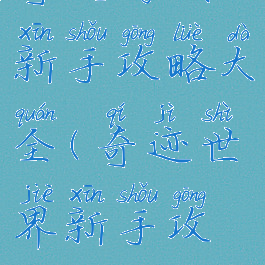 xīn shǒu gōng lüè dà
新手攻略大
quán qí jì shì
全(奇迹世
jiè xīn shǒu gōng
界新手攻